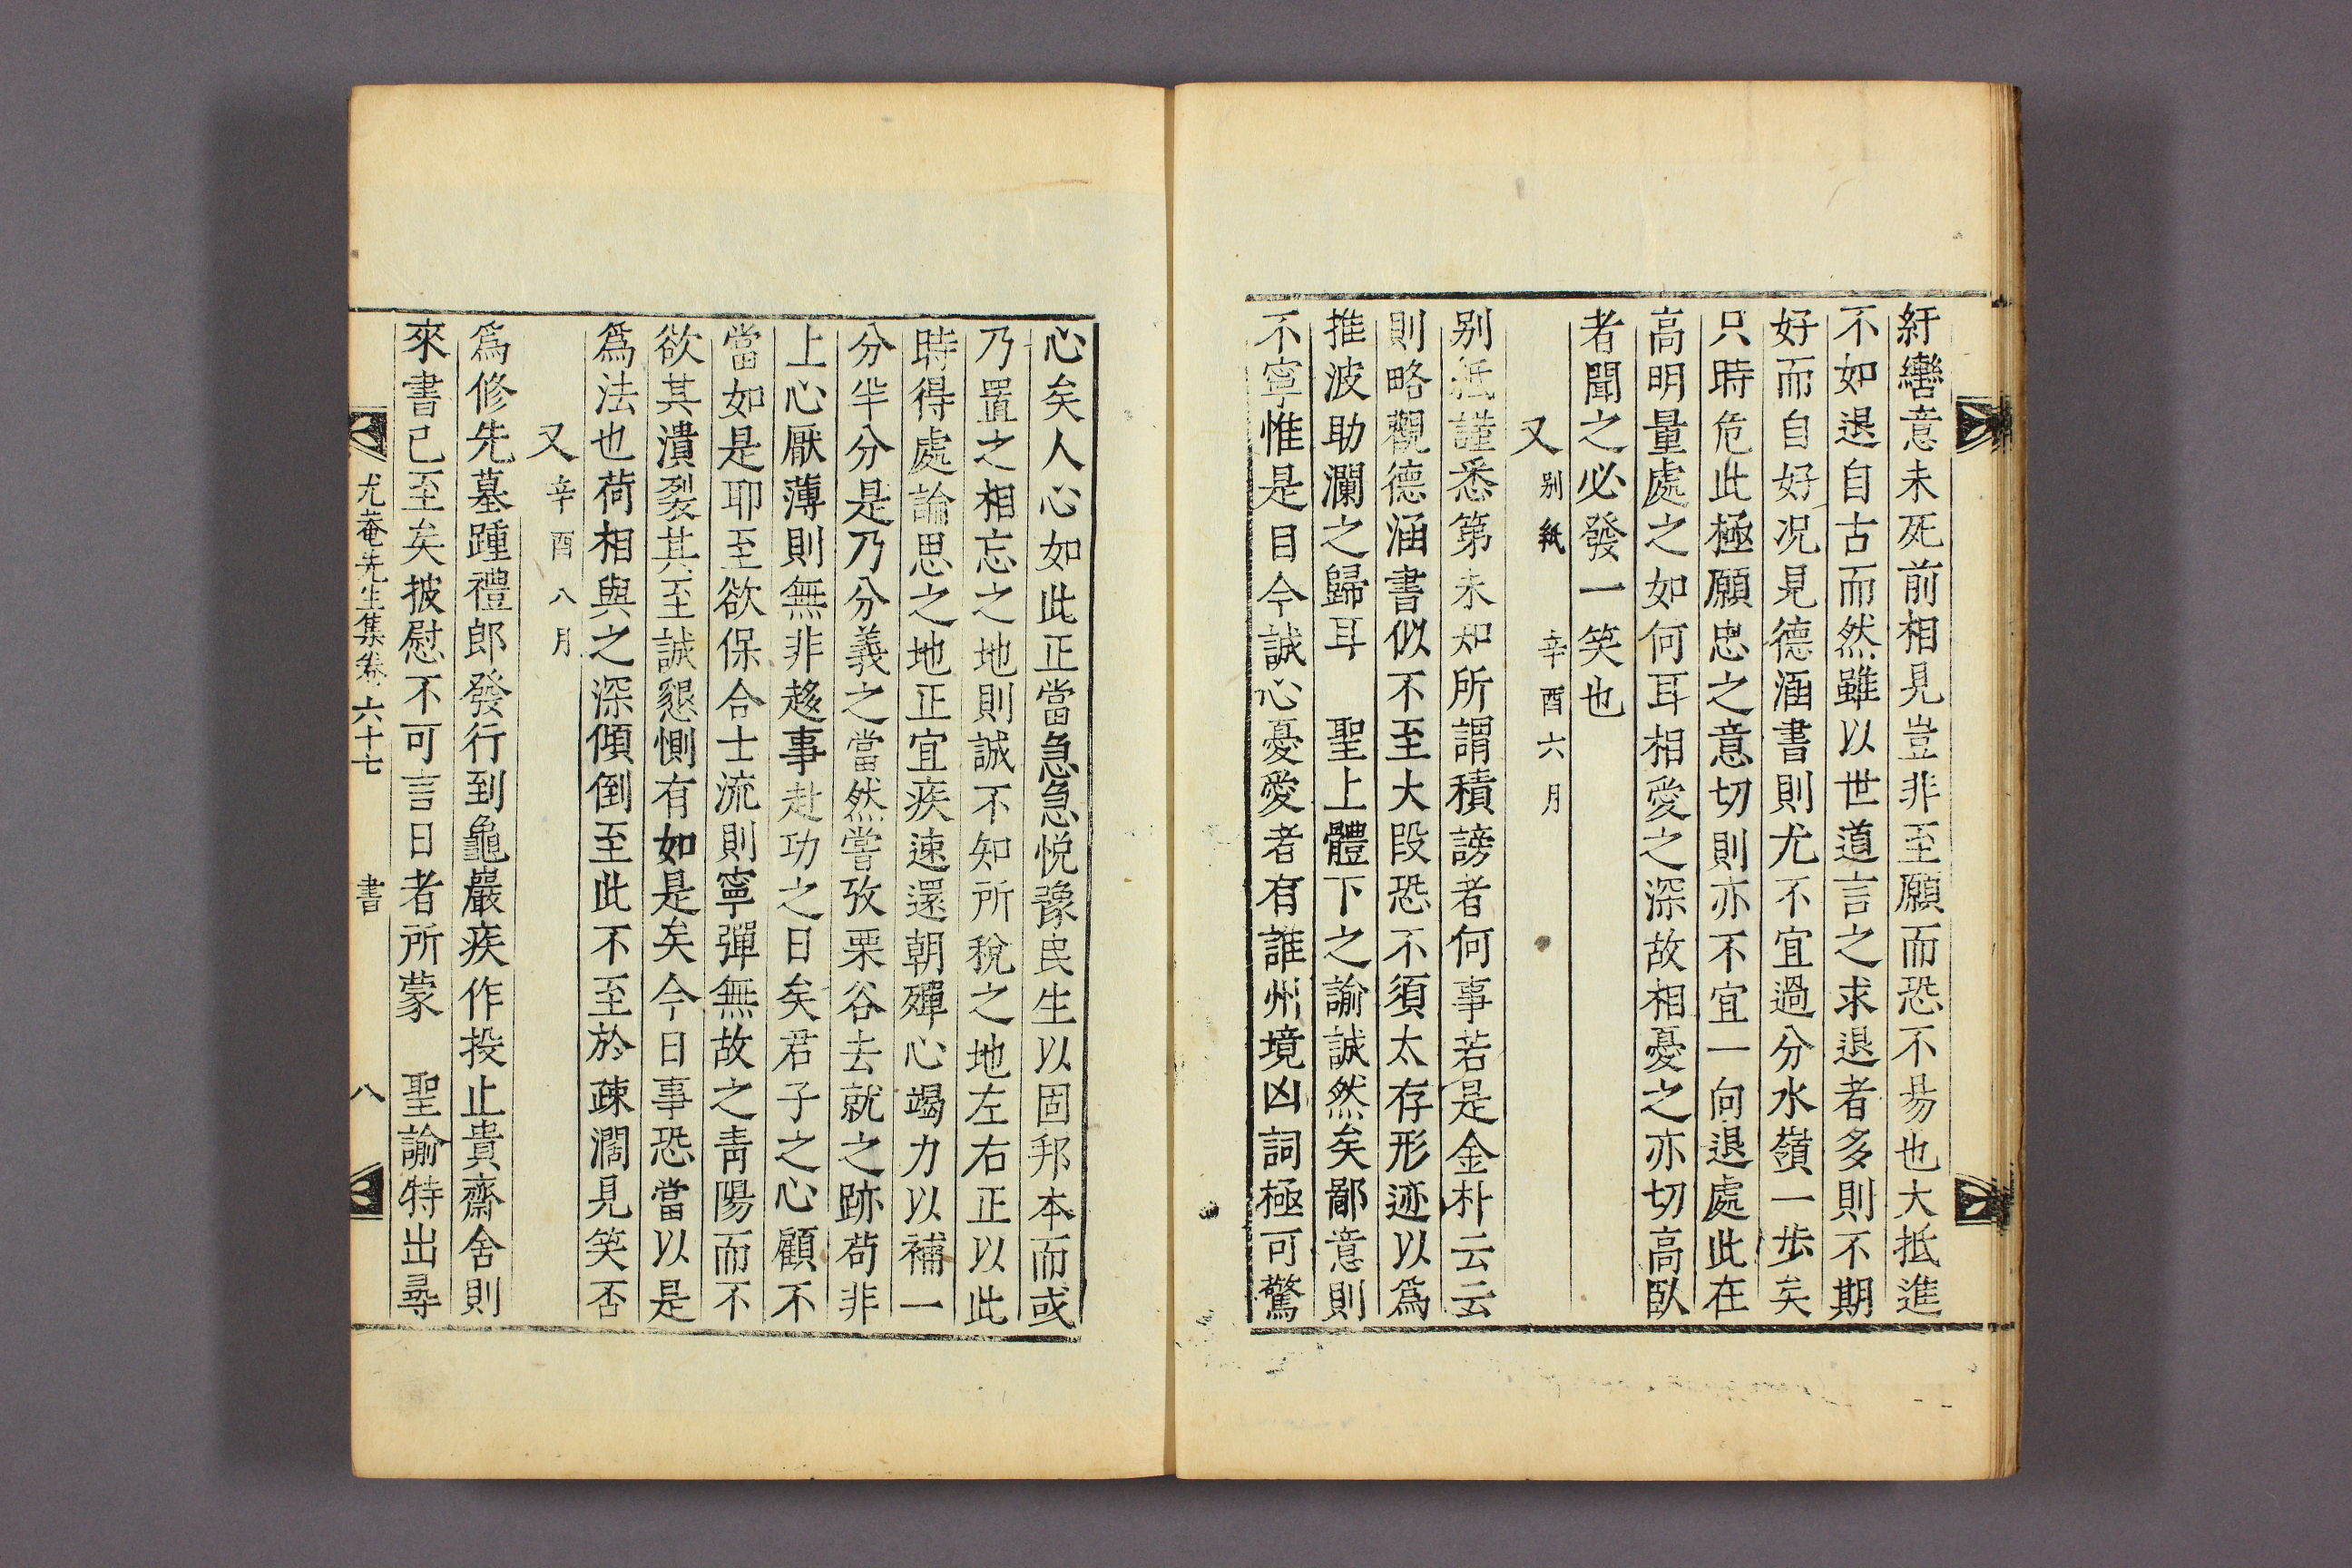 紆轡意未死前相見豈非至願而恐不易也大抵進
不如退自古而然雖以世道言之求退者多則不期
好而自好况見德涵書則尤不宜過分水嶺一步矣
只時危此極願忠之意切則亦不宜一向退處此在
高明量處之如何耳相愛之深故相憂之亦切高臥
者聞之必發一笑也
又 别紙 辛酉六月
别紙謹悉第未知所謂積謗者何事若是金朴云云
則略觀德涵書似不至大段恐不須太存形迹以爲
推波助瀾之歸耳 聖上體下之諭誠然矣鄙意則
不寧惟是目今誠心憂愛者有誰州境凶詞極可驚
心矣人心如此正當急急悅豫民生以固邦本而或
乃置之相忘之地則誠不知所稅之地左右正以此
時得處論思之地正宜疾速還朝殫心竭力以補一
分半分是乃分義之當然嘗攷栗谷去就之跡苟非
上心厭薄則無非趍事赴功之日矣君子之心顧不
當如是耶至欲保合士流則寧彈無故之靑陽而不
欲其潰裂其至誠懇惻有如是矣今日事恐當以是
爲法也荷相與之深傾倒至此不至於疎濶見笑否
又 辛酉八月
爲修先墓踵禮郎發行到龜巖疾作投止貴齋舍則
來書已至矣披慰不可言日者所蒙 聖諭特出尋
尤菴先生集卷六十七 書 八